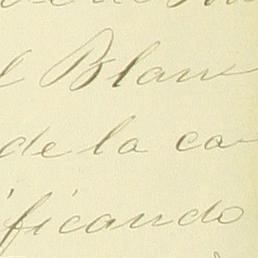 l Blan
de la ca
ificando